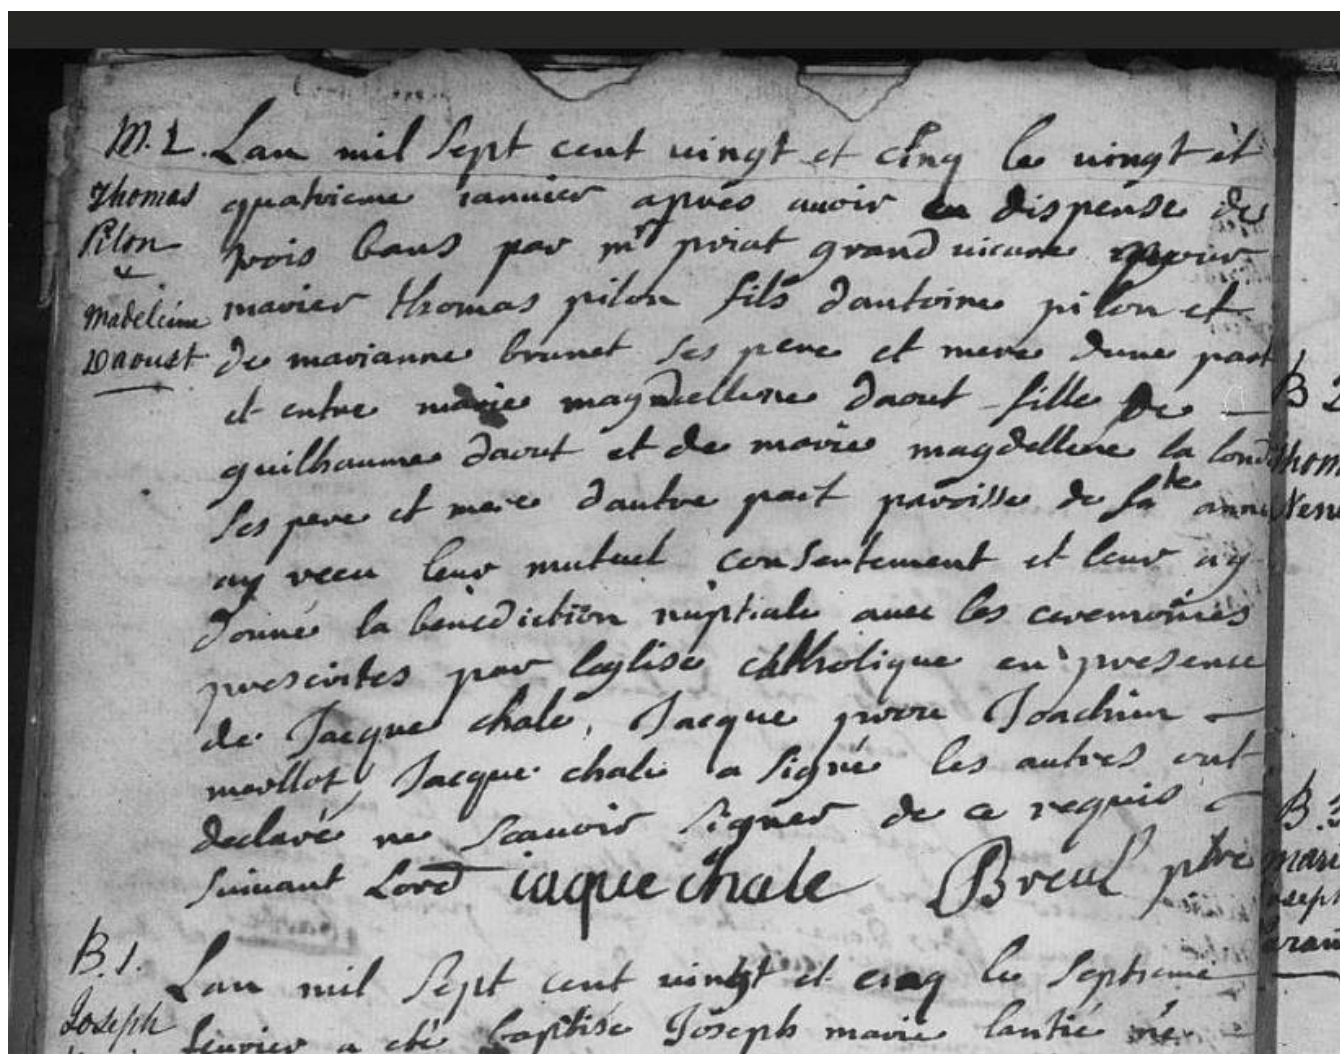 M. 1. Lan mil Sept cent vingt et cinq le vingt et
Thomas quatrieme ianvier aprés avoir eu dispense de
Pilon trois bans par mr priat grand vicaire
&
Madeleine marier thomas pilon fils dantoine pilon et
Daoust de marianne brunet Ses pere et mere dune part
et entre marie magdellene daout fille de
guilhaume daout et de marie magdellene la lond
Ses pere et mere dautre part paroisse de Ste anne
ay receu leur mutuel consentement et leur ay
donné la benediction nuptiale avec les ceremonies
prescrites par leglise catholique en presence
de Jacque chale, Jacque Joachim
Jacque chale a Signé les autres ont
declaré ne Scavoir Signer de ce requis
Suivant Lord iaque chale Breul ptre
B. 1.
Lan mil Sept cent vingt et cinq le Septieme
Joseph fevrier a eté baptisé Joseph marie lantié né
B
thom
B. 3
mari
oseph